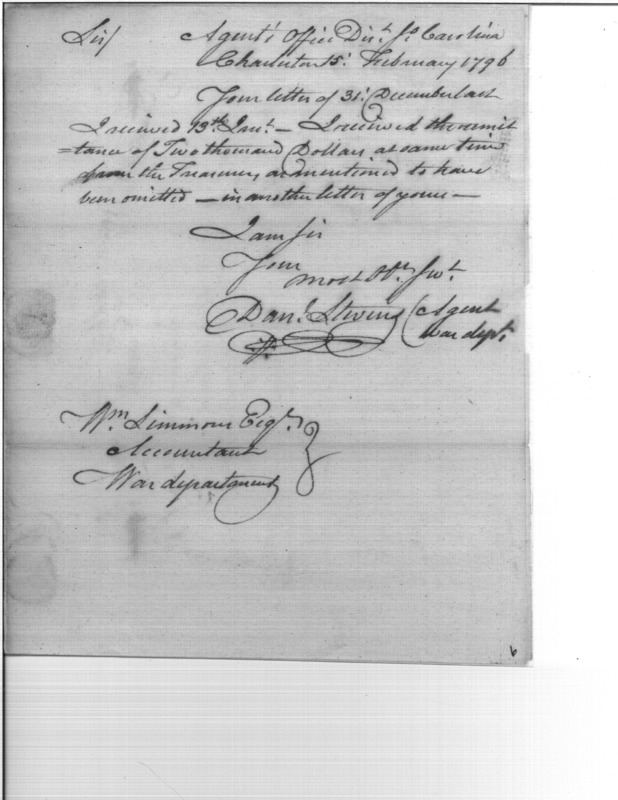 Sir/ Agent's Office Dist. So. Carolina
Charleston 15t. February 1796
Your letter of 31t. December last
I received 13th. Inst. — I received the remit
=tance of Two thousand Dollars at same time
from the Treasury, as mentioned to have
been omitted — in another letter of yours —
I am Sir
Your
most Ob. Svt.
Danl. Stevens (Agent
War dept.
Wm. Simmons Esqr.
Accountant
War department
6